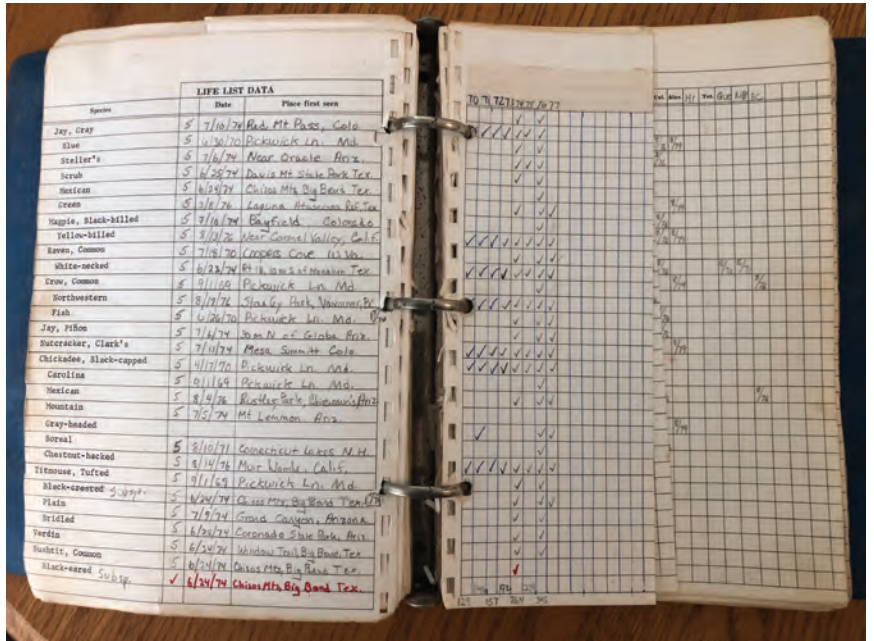 LIFE LIST DATA
Species Date Place first seen
Jay, Gray 5 7/10/74 Red Mt Pass, Colo
Blue 5 6/30/70 Pickwick Ln. Md.
Steller's 5 7/6/74 Near Oracle Ariz.
Scrub 5 6/25/74 Davis Mt State Park Tex.
Mexican 5 6/24/74 Chisos Mts, Big Bend Tex.
Green 5 2/8/76 Laguna Atascosa Ref, Tex
Magpie, Black-billed 5 7/10/74 Bayfield Colorado
Yellow-billed 5 8/13/76 Near Carmel Valley, Calif.
Raven, Common 5 7/18/70 Coopers Cove W.Va.
White-necked 5 6/23/74 Rt 18, 10m S of Monahan Tex
Crow, Common 5 9/1/69 Pickwick Ln. Md
Northwestern 5 8/19/76 Stanley Park, Vancouver, BC
Fish 5 6/26/70 Pickwick Ln. Md.
Jay, Piñon 5 7/6/74 30m N of Globe Ariz.
Nutcracker, Clark's 5 7/11/74 Mesa Summitt Colo
Chickadee, Black-capped 5 4/17/70 Pickwick Ln. Md.
Carolina 5 9/1/69 Pickwick Ln. Md.
Mexican 5 8/9/76 Rustler Park, Ariz
Mountain 5 7/5/74 Mt Lemmon Ariz.
Gray-headed
Boreal 5 8/10/71 Connecticut Lakes N.H.
Chestnut-backed 5 8/14/76 Muir Woods, Calif.
Titmouse, Tufted 5 9/1/69 Pickwick Ln. Md.
Black-crested Subsp. 5 6/24/74 Chisos Mts, Big Bend Tex.
Plain 5 7/9/74 Grand Canyon, Arizona
Bridled 5 6/28/74 Coronado State Park, Ariz
Verdin 5 6/24/74 Window Trail, Big Bend, Tex
Bushtit, Common 5 6/24/74 Chisos Mts, Big Bend Tex.
Black-eared Subsp. ✓ 6/24/74 Chisos Mts, Big Bend Tex.
70 71 72 73 74 75 76 77
Hi Tex Que NB BC
124 157 264 315